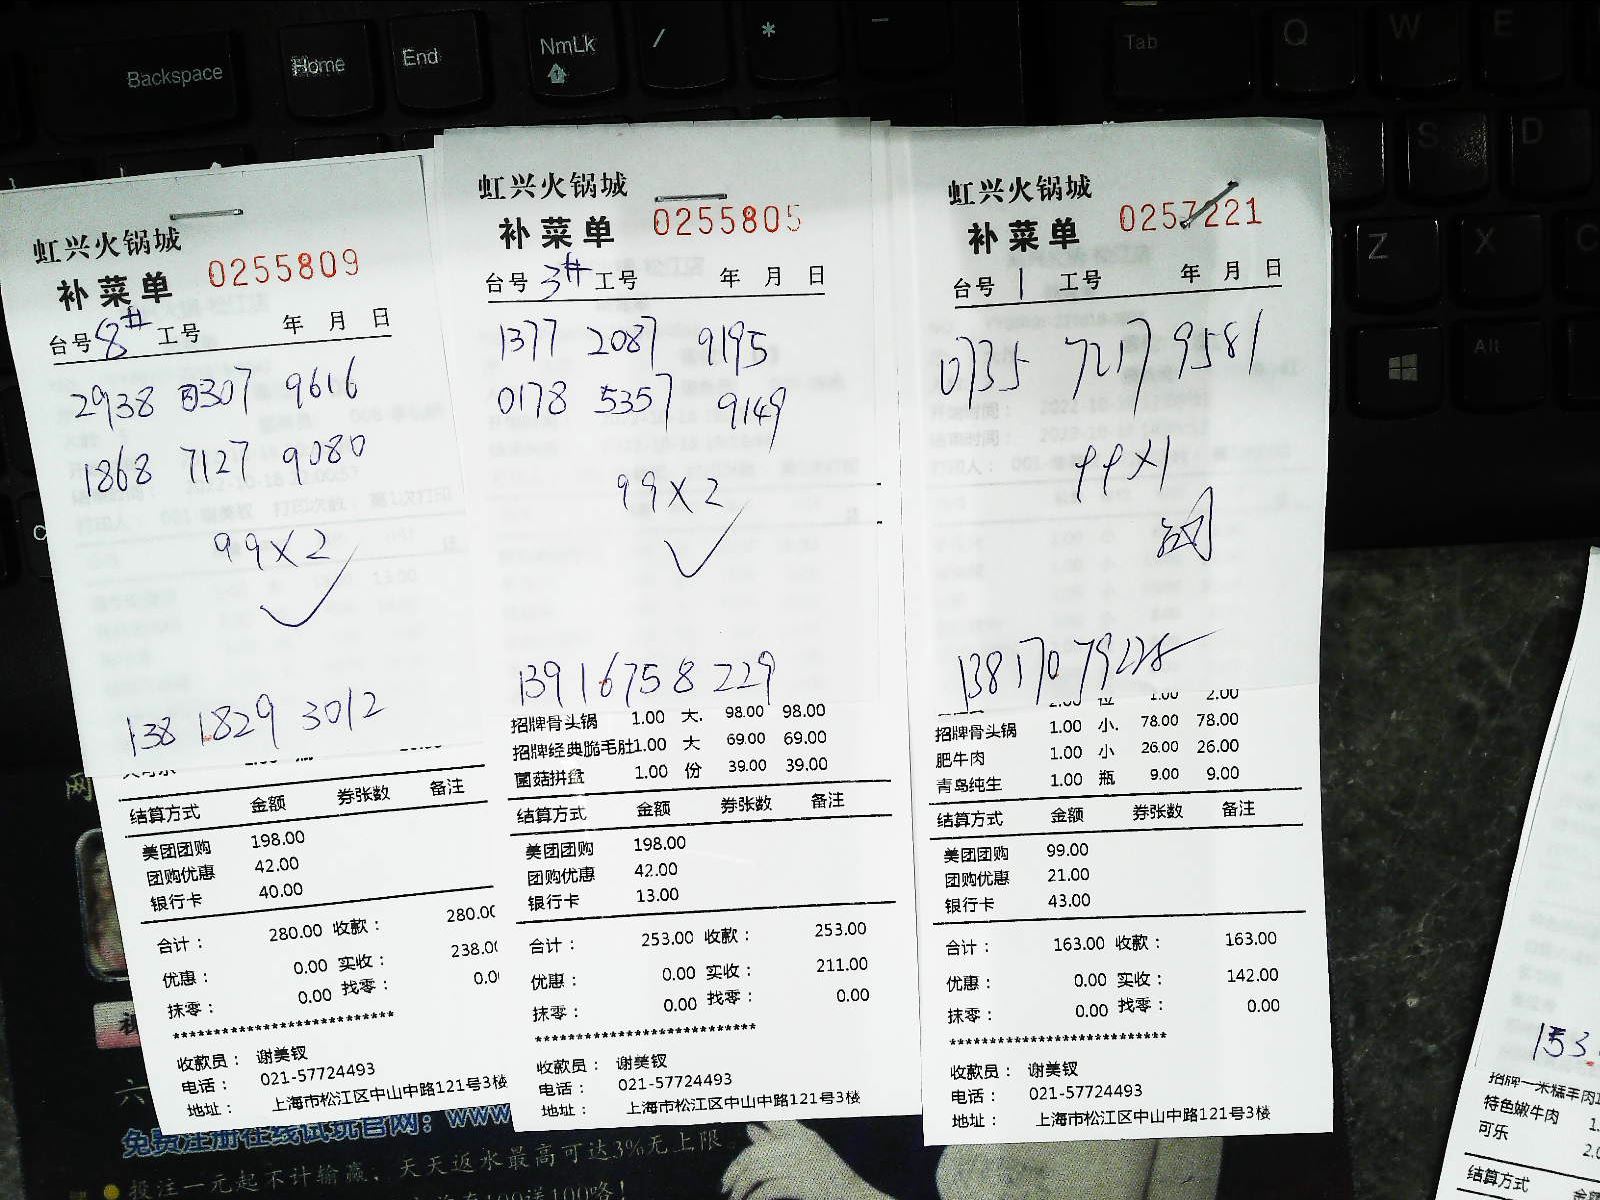 Backspace
Home
End
NmLk
/
*
-
Tab
Q
W
E
S
D
Z
X
C
Alt
虹兴火锅城
补菜单 0255809
台号 8# 工号 年 月 日
2938 0307 9616
1868 7127 9080
99×2
138 1829 3012
结算方式 金额 券张数 备注
美团团购 198.00
团购优惠 42.00
银行卡 40.00
合计: 280.00 收款: 280.00
优惠: 0.00 实收: 238.00
抹零: 0.00 找零: 0.00
***************************
收款员: 谢美钗
电话: 021-57724493
地址: 上海市松江区中山中路121号3楼
虹兴火锅城
补菜单 0255805
台号 3# 工号 年 月 日
1377 2087 9195
0178 5357 9149
99×2
139 1675 8229
招牌骨头锅 1.00 大. 98.00 98.00
招牌经典脆毛肚1.00 大 69.00 69.00
菌菇拼盘 1.00 份 39.00 39.00
结算方式 金额 券张数 备注
美团团购 198.00
团购优惠 42.00
银行卡 13.00
合计: 253.00 收款: 253.00
优惠: 0.00 实收: 211.00
抹零: 0.00 找零: 0.00
***************************
收款员: 谢美钗
电话: 021-57724493
地址: 上海市松江区中山中路121号3楼
虹兴火锅城
补菜单 0257221
台号 1 工号 年 月 日
0735 7217 9581
99×1
2.00 位 1.00 2.00
招牌骨头锅 1.00 小. 78.00 78.00
肥牛肉 1.00 小 26.00 26.00
青岛纯生 1.00 瓶 9.00 9.00
结算方式 金额 券张数 备注
美团团购 99.00
团购优惠 21.00
银行卡 43.00
合计: 163.00 收款: 163.00
优惠: 0.00 实收: 142.00
抹零: 0.00 找零: 0.00
***************************
收款员: 谢美钗
电话: 021-57724493
地址: 上海市松江区中山中路121号3楼
153
招牌一米糕羊肉1
特色嫩牛肉 1.
可乐 2.0
结算方式 金
网
六
免费注册在线试玩官网: www
投注一元起不计输赢、天天返水最高可达3%无上限